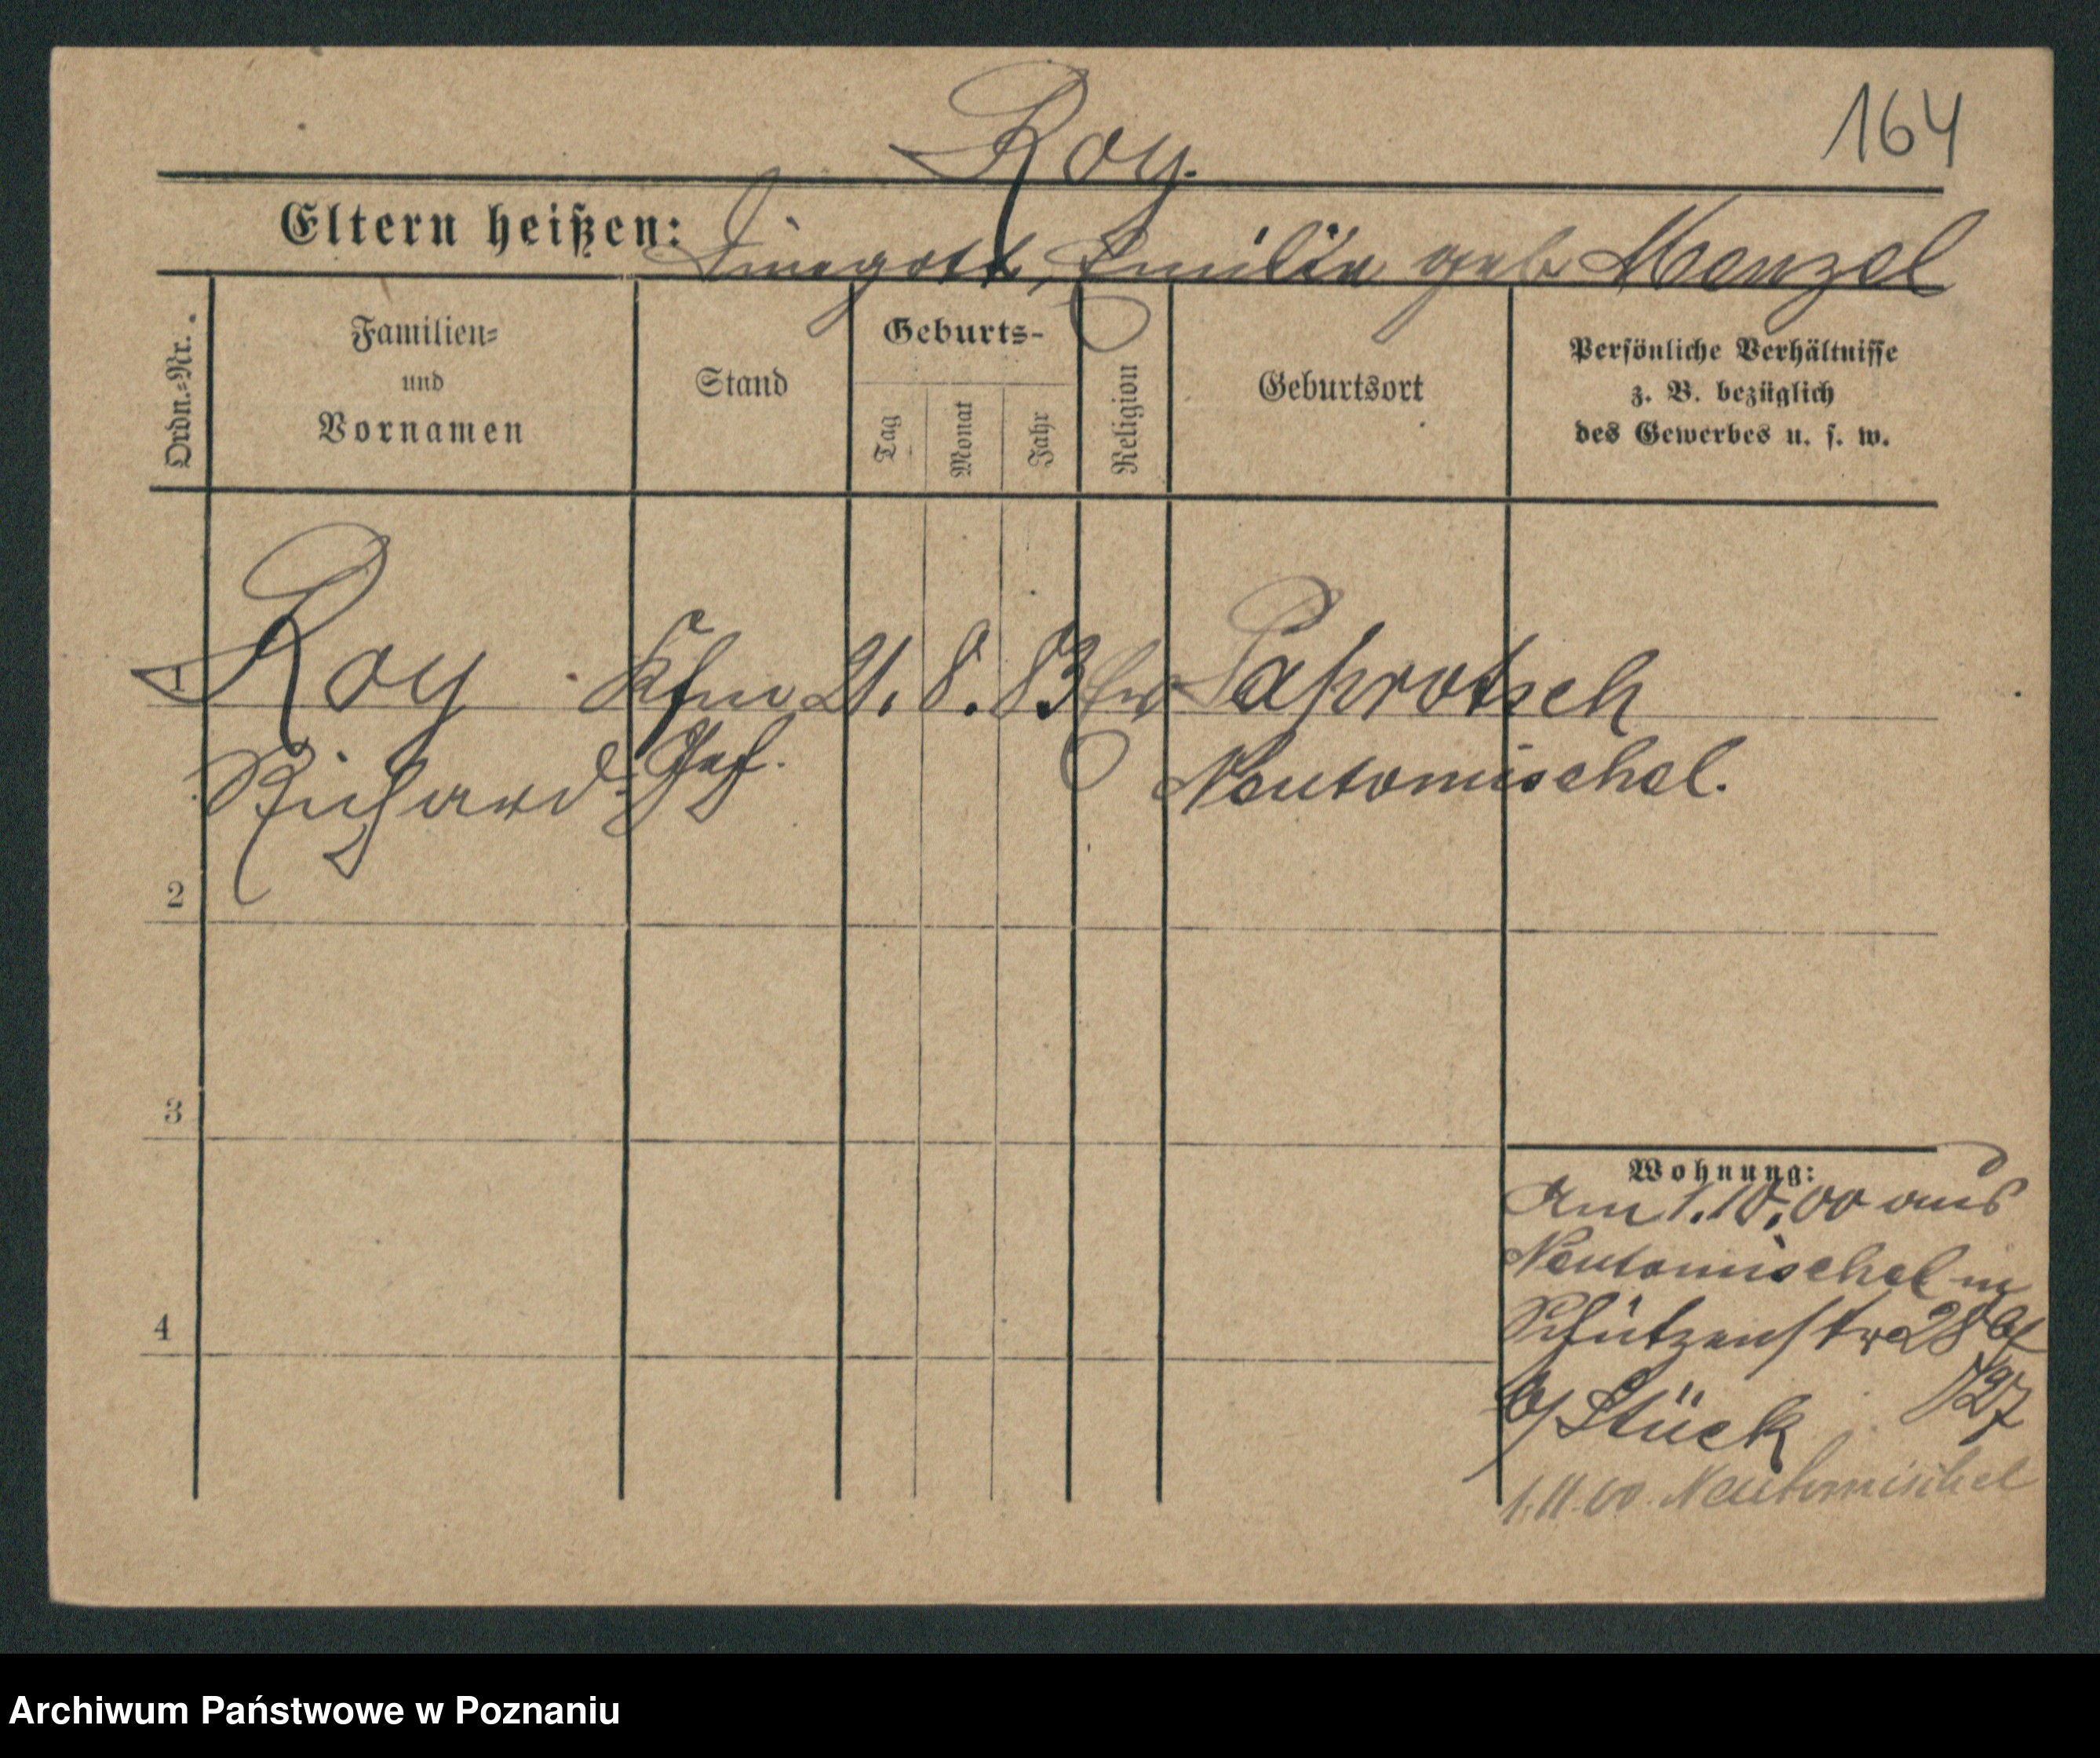 Roy.
164
Eltern heißen:
Emilie geb Menzel
Ordn.-Nr.
Familien-
und
Vornamen
Stand
Geburts-
Tag
Monat
Jahr
Religion
Geburtsort
Persönliche Verhältnisse
z. B. bezüglich
des Gewerbes u. s. w.
1
Roy Kfm 21. 8. 83 Paprotsch
Richard Neutomischel.
2
3
4
Wohnung:
Am 1.10.00 aus
Neutomischel in
Schützenstr 28
b/ Stück
1.11.00. Neutomischel
Archiwum Państwowe w Poznaniu